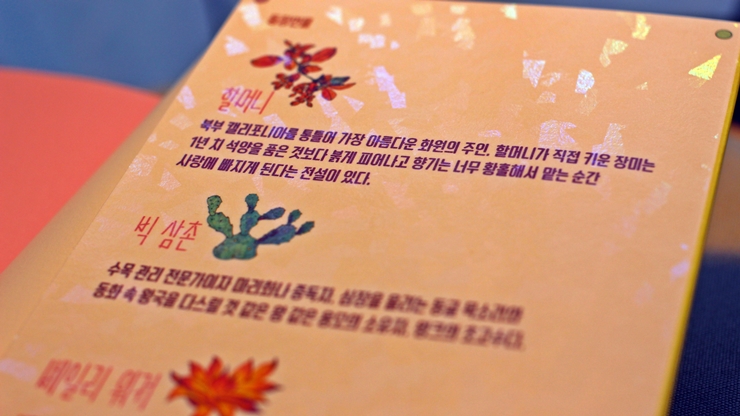 등장인물
할머니
북부 캘리포니아를 통틀어 가장 아름다운 화원의 주인. 할머니가 직접 키운 장미는
1년 치 석양을 품은 것보다 붉게 피어나고 향기는 너무 황홀해서 맡는 순간
사랑에 빠지게 된다는 전설이 있다.
빅 삼촌
수목 관리 전문가이자 마리화나 중독자. 심장을 울리는 동굴 목소리와
동화 속 왕국을 다스릴 것 같은 왕 같은 용모의 소유자. 뱅크의 초고수다.
베일리 워커